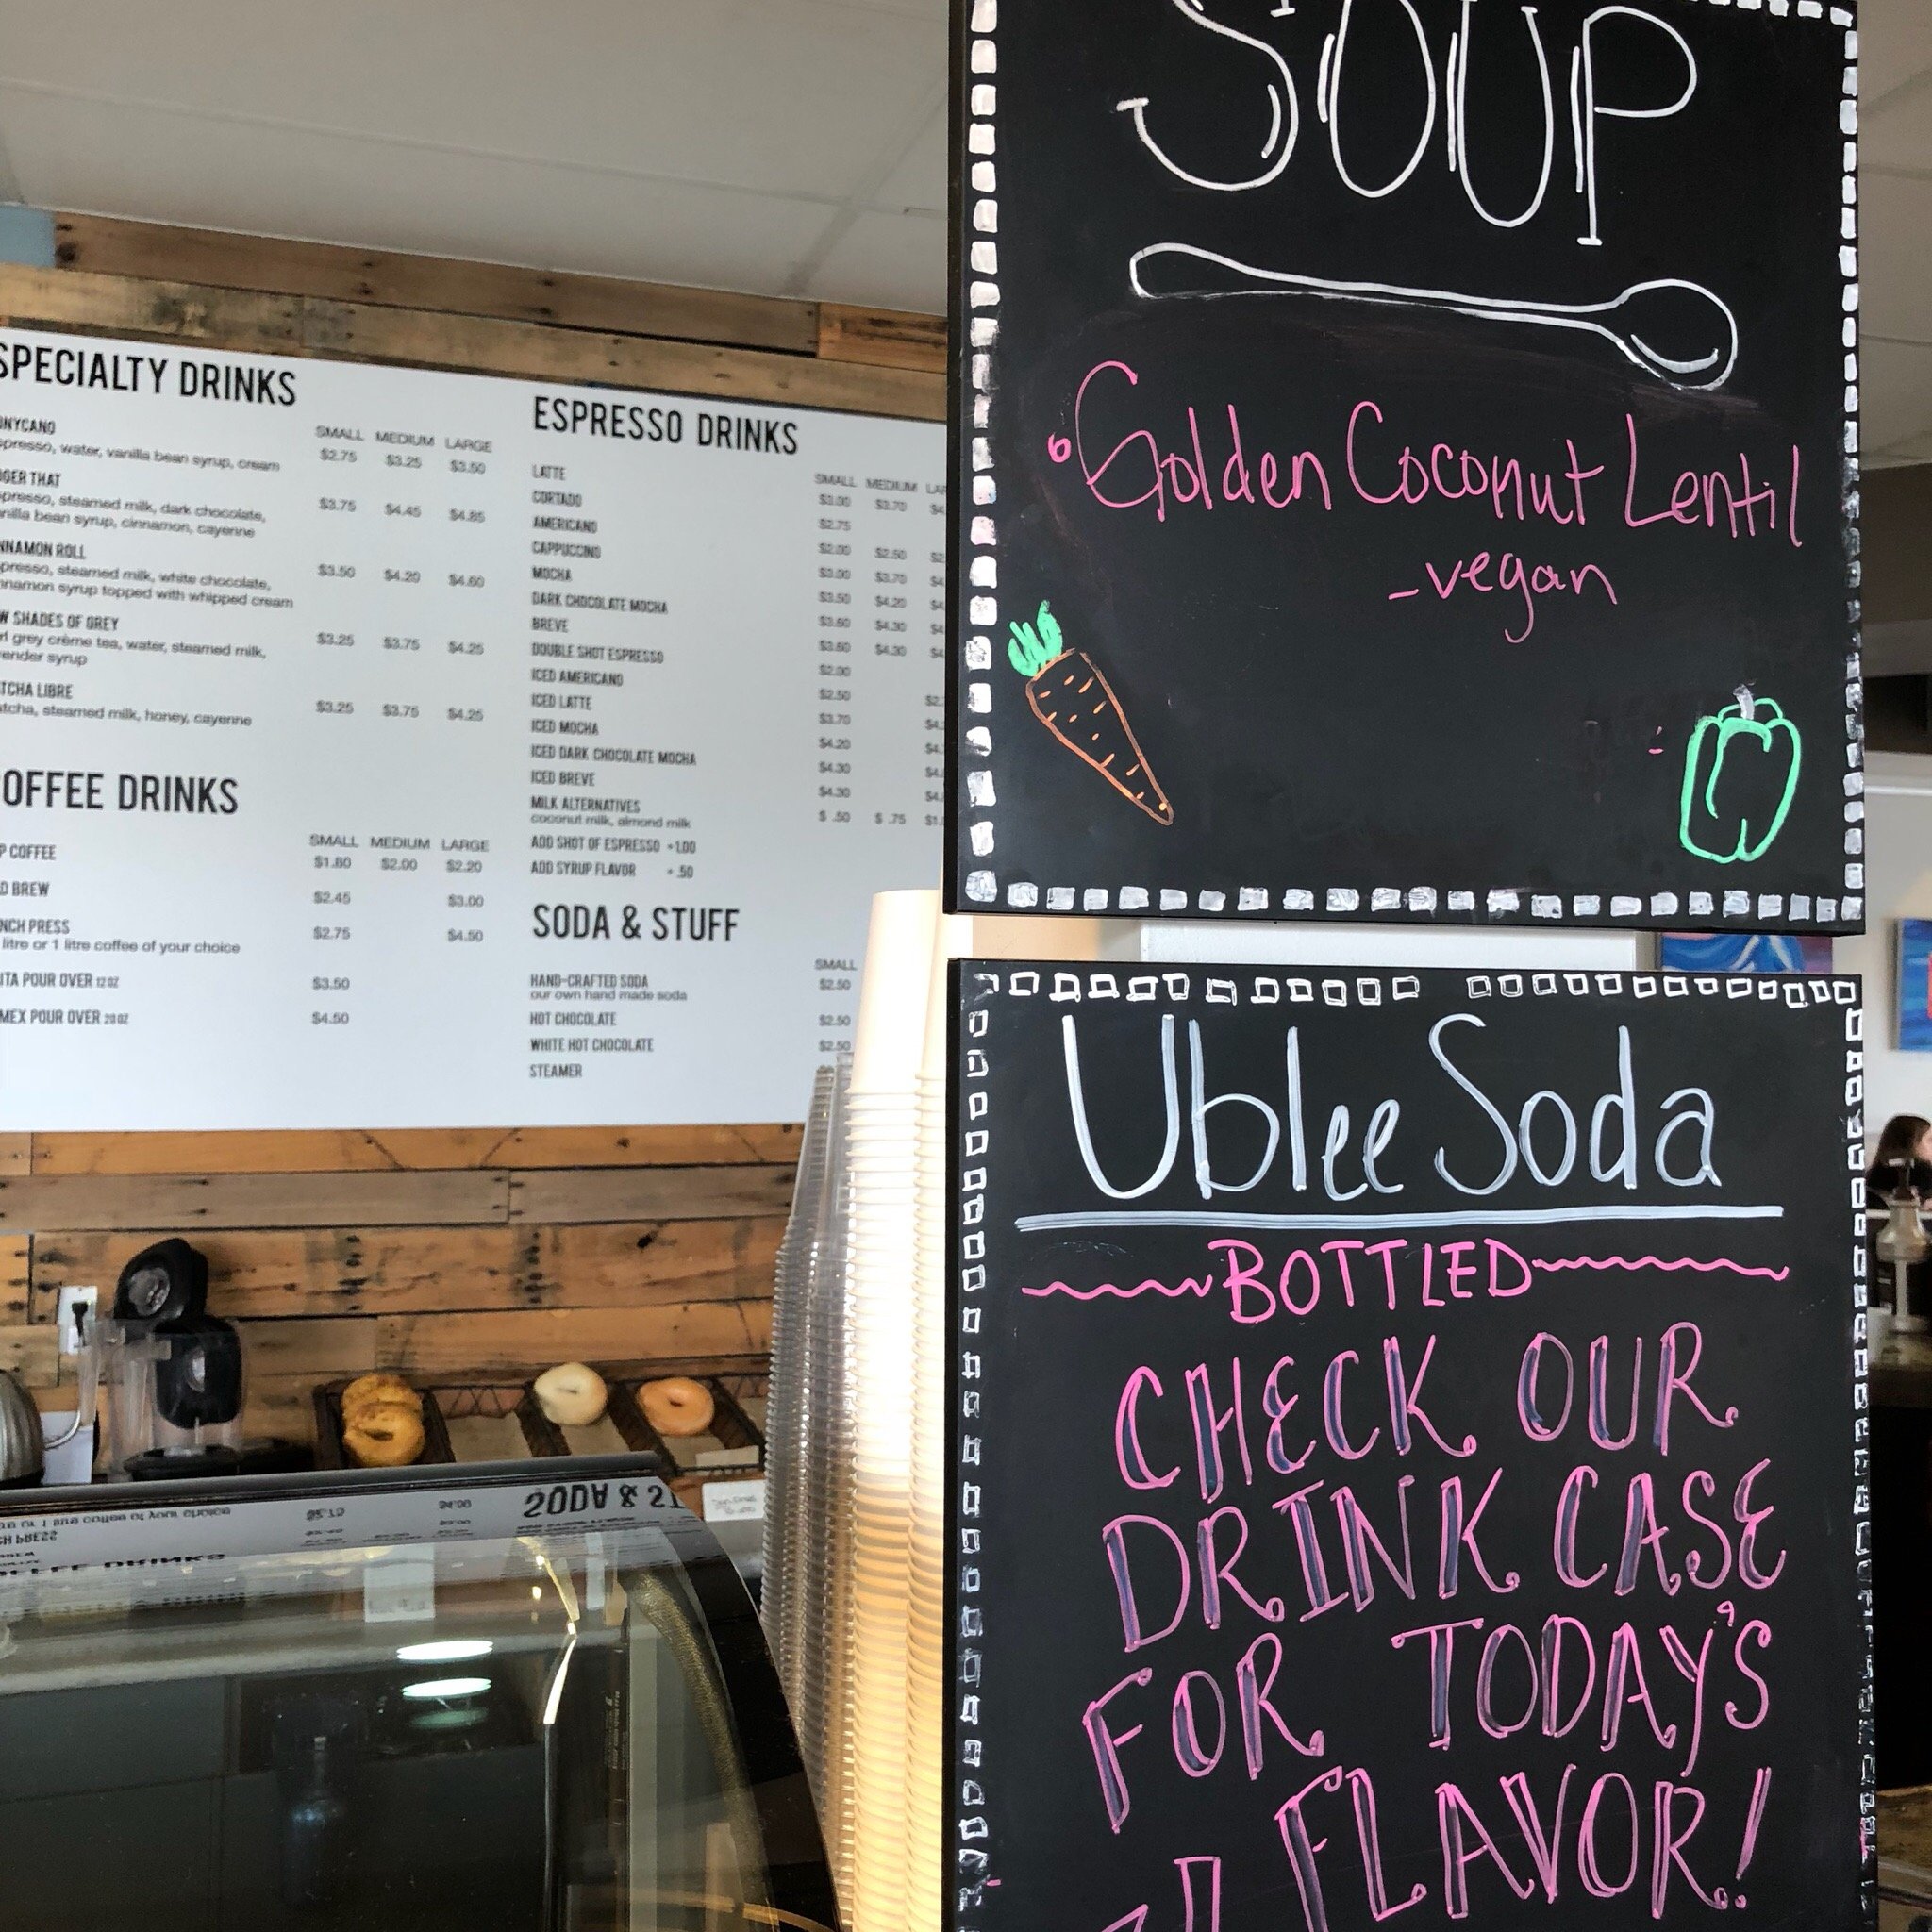 SPECIALTY DRINKS
SMALL MEDIUM LARGE
espresso, water, vanilla bean syrup, cream $2.75 $3.25 $3.50
GER THAT
presso, steamed milk, dark chocolate, $3.75 $4.45 $4.85
nilla bean syrup, cinnamon, cayenne
NNAMON ROLL
presso, steamed milk, white chocolate, $3.50 $4.20 $4.60
nnamon syrup topped with whipped cream
W SHADES OF GREY
rl grey crème tea, water, steamed milk, $3.25 $3.75 $4.25
ender syrup
TCHA LIBRE
tcha, steamed milk, honey, cayenne $3.25 $3.75 $4.25
OFFEE DRINKS
SMALL MEDIUM LARGE
P COFFEE $1.80 $2.00 $2.20
D BREW $2.45 $3.00
NCH PRESS $2.75 $4.50
litre or 1 litre coffee of your choice
ITA POUR OVER 12 OZ $3.50
MEX POUR OVER 20 OZ $4.50
ESPRESSO DRINKS
SMALL MEDIUM LAR
LATTE $3.00 $3.70 $4.
CORTADO $2.75
AMERICANO $2.00 $2.50 $2
CAPPUCCINO $3.00 $3.70 $4
MOCHA $3.50 $4.20 $4
DARK CHOCOLATE MOCHA $3.60 $4.30 $4
BREVE $3.60 $4.30 $4
DOUBLE SHOT ESPRESSO $2.00
ICED AMERICANO $2.50 $2.
ICED LATTE $3.70 $4.
ICED MOCHA $4.20 $4.
ICED DARK CHOCOLATE MOCHA $4.30 $4.
ICED BREVE $4.30 $4.
MILK ALTERNATIVES $ .50 $ .75 $1.
coconut milk, almond milk
ADD SHOT OF ESPRESSO +1.00
ADD SYRUP FLAVOR + .50
SODA & STUFF
SMALL
HAND-CRAFTED SODA $2.50
our own hand made soda
HOT CHOCOLATE $2.50
WHITE HOT CHOCOLATE $2.50
STEAMER
SOUP
Golden Coconut Lentil
-vegan
Ublee Soda
BOTTLED
CHECK OUR
DRINK CASE
FOR TODAY'S
FLAVOR!